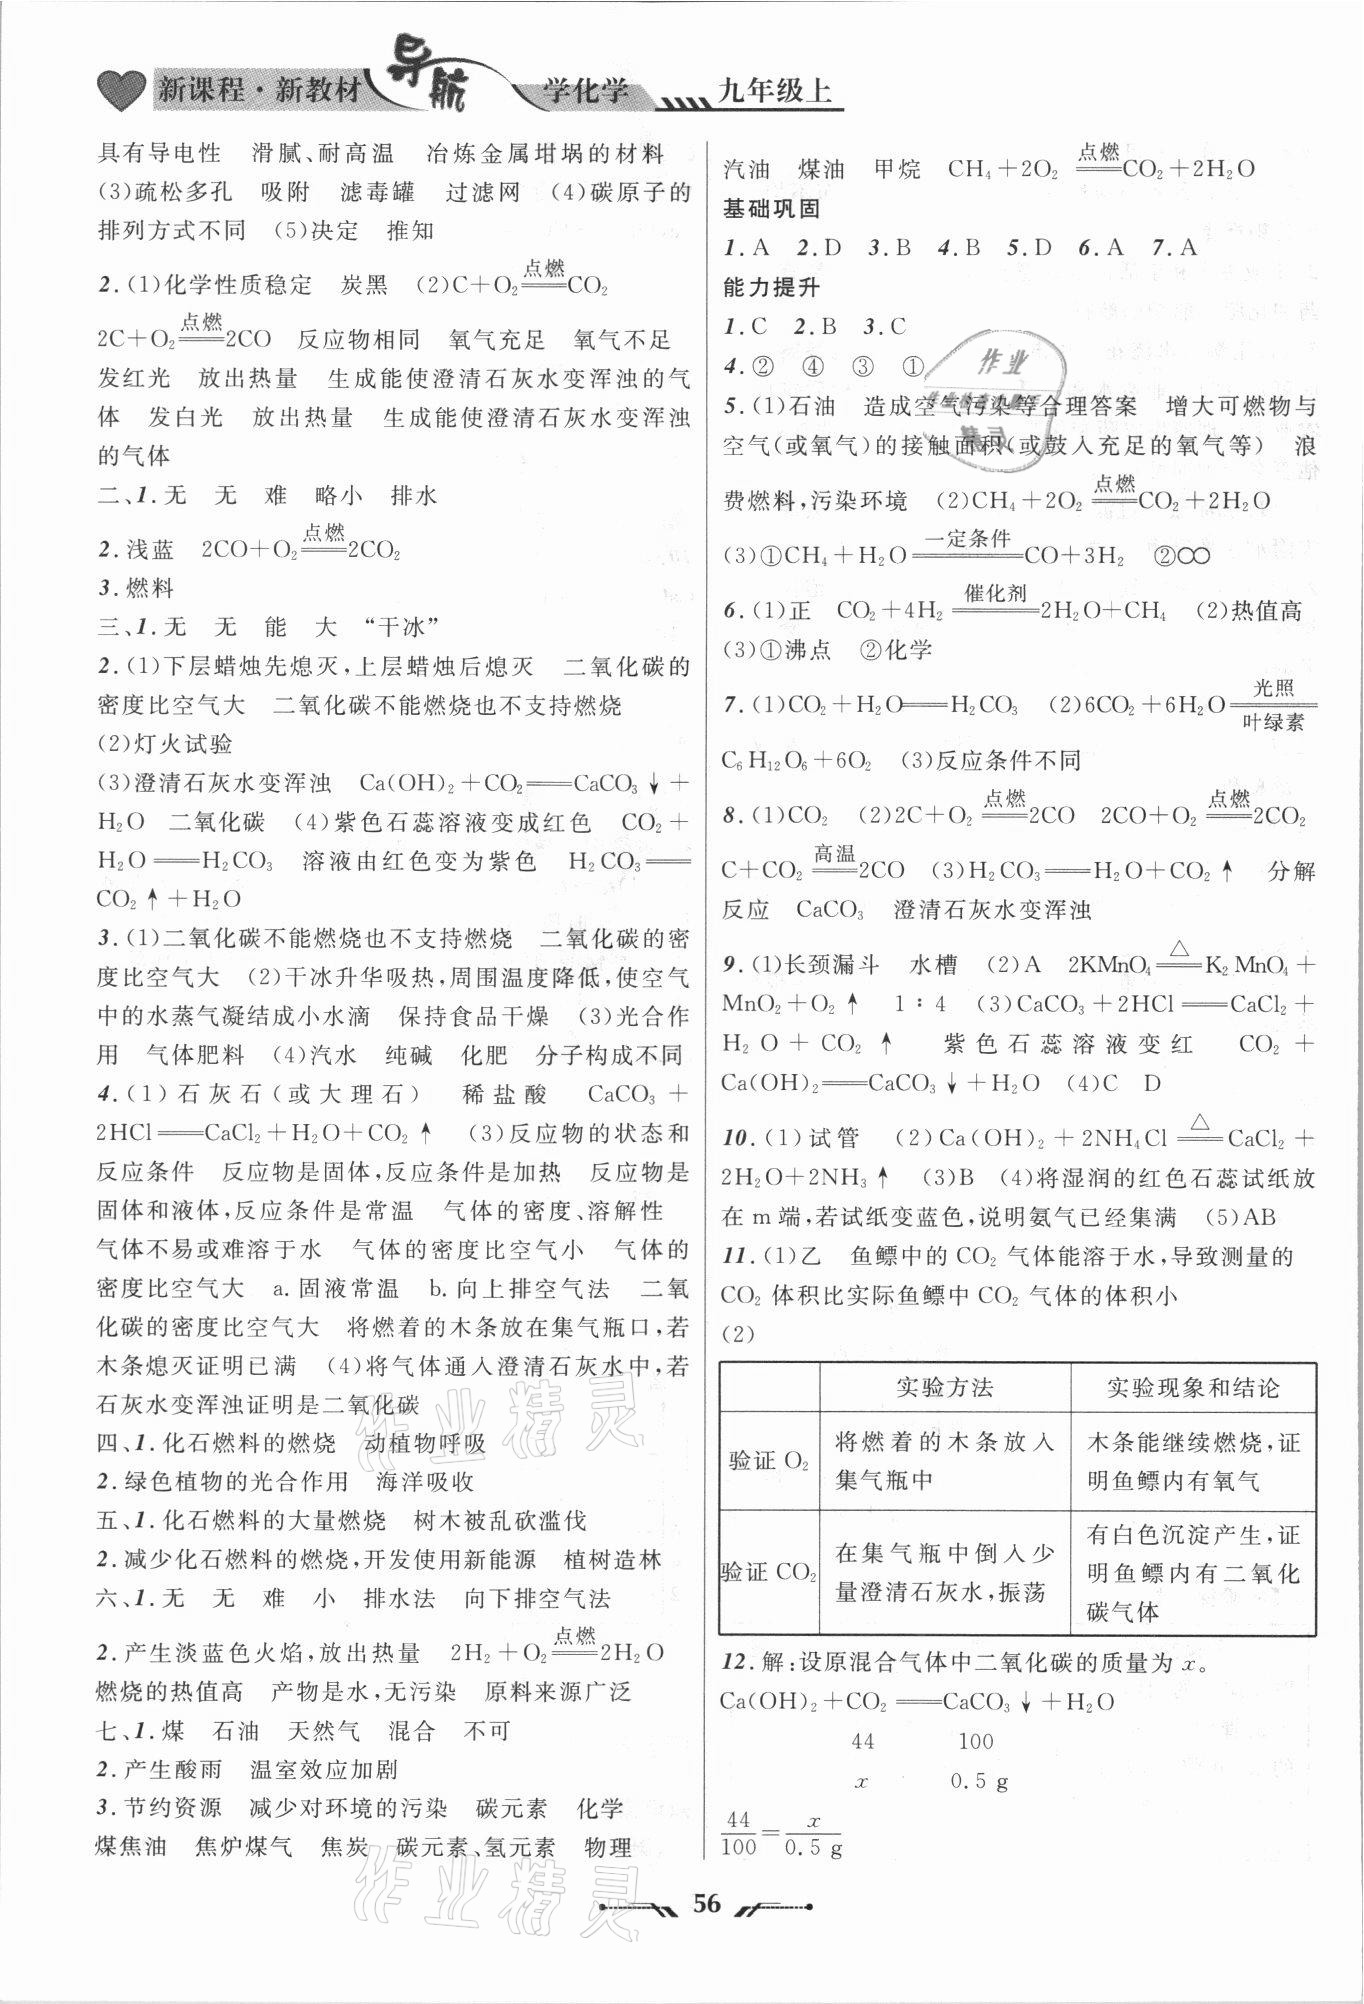 新课程·新教材 导航 学化学 九年级上
具有导电性 滑腻、耐高温 冶炼金属坩埚的材料
(3)疏松多孔 吸附 滤毒罐 过滤网 (4)碳原子的
排列方式不同 (5)决定 推知
2.(1)化学性质稳定 炭黑 (2)C+O₂ 点燃══ CO₂
2C+O₂ 点燃══ 2CO 反应物相同 氧气充足 氧气不足
发红光 放出热量 生成能使澄清石灰水变浑浊的气
体 发白光 放出热量 生成能使澄清石灰水变浑浊
的气体
二、1.无 无 难 略小 排水
2.浅蓝 2CO+O₂ 点燃══ 2CO₂
3.燃料
三、1.无 无 能 大 “干冰”
2.(1)下层蜡烛先熄灭,上层蜡烛后熄灭 二氧化碳的
密度比空气大 二氧化碳不能燃烧也不支持燃烧
(2)灯火试验
(3)澄清石灰水变浑浊 Ca(OH)₂+CO₂══CaCO₃↓+
H₂O 二氧化碳 (4)紫色石蕊溶液变成红色 CO₂+
H₂O══H₂CO₃ 溶液由红色变为紫色 H₂CO₃══
CO₂↑+H₂O
3.(1)二氧化碳不能燃烧也不支持燃烧 二氧化碳的密
度比空气大 (2)干冰升华吸热,周围温度降低,使空气
中的水蒸气凝结成小水滴 保持食品干燥 (3)光合作
用 气体肥料 (4)汽水 纯碱 化肥 分子构成不同
4.(1)石灰石(或大理石) 稀盐酸 CaCO₃+
2HCl══CaCl₂+H₂O+CO₂↑ (3)反应物的状态和
反应条件 反应物是固体,反应条件是加热 反应物是
固体和液体,反应条件是常温 气体的密度、溶解性
气体不易或难溶于水 气体的密度比空气小 气体的
密度比空气大 a.固液常温 b.向上排空气法 二氧
化碳的密度比空气大 将燃着的木条放在集气瓶口,若
木条熄灭证明已满 (4)将气体通入澄清石灰水中,若
石灰水变浑浊证明是二氧化碳
四、1.化石燃料的燃烧 动植物呼吸
2.绿色植物的光合作用 海洋吸收
五、1.化石燃料的大量燃烧 树木被乱砍滥伐
2.减少化石燃料的燃烧,开发使用新能源 植树造林
六、1.无 无 难 小 排水法 向下排空气法
2.产生淡蓝色火焰,放出热量 2H₂+O₂ 点燃══ 2H₂O
燃烧的热值高 产物是水,无污染 原料来源广泛
七、1.煤 石油 天然气 混合 不可
2.产生酸雨 温室效应加剧
3.节约资源 减少对环境的污染 碳元素 化学
煤焦油 焦炉煤气 焦炭 碳元素、氢元素 物理
汽油 煤油 甲烷 CH₄+2O₂ 点燃══ CO₂+2H₂O
基础巩固
1.A 2.D 3.B 4.B 5.D 6.A 7.A
能力提升
1.C 2.B 3.C
4.② ④ ③ ①
5.(1)石油 造成空气污染等合理答案 增大可燃物与
空气(或氧气)的接触面积(或鼓入充足的氧气等) 浪
费燃料,污染环境 (2)CH₄+2O₂ 点燃══ CO₂+2H₂O
(3)①CH₄+H₂O 一定条件══ CO+3H₂ ②○○
6.(1)正 CO₂+4H₂ 催化剂══ 2H₂O+CH₄ (2)热值高
(3)①沸点 ②化学
7.(1)CO₂+H₂O══H₂CO₃ (2)6CO₂+6H₂O 光照══叶绿素
C₆H₁₂O₆+6O₂ (3)反应条件不同
8.(1)CO₂ (2)2C+O₂ 点燃══ 2CO 2CO+O₂ 点燃══ 2CO₂
C+CO₂ 高温══ 2CO (3)H₂CO₃══H₂O+CO₂↑ 分解
反应 CaCO₃ 澄清石灰水变浑浊
9.(1)长颈漏斗 水槽 (2)A 2KMnO₄ △══ K₂MnO₄+
MnO₂+O₂↑ 1∶4 (3)CaCO₃+2HCl══CaCl₂+
H₂O+CO₂↑ 紫色石蕊溶液变红 CO₂+
Ca(OH)₂══CaCO₃↓+H₂O (4)C D
10.(1)试管 (2)Ca(OH)₂+2NH₄Cl △══ CaCl₂+
2H₂O+2NH₃↑ (3)B (4)将湿润的红色石蕊试纸放
在m端,若试纸变蓝色,说明氨气已经集满 (5)AB
11.(1)乙 鱼鳔中的CO₂气体能溶于水,导致测量的
CO₂体积比实际鱼鳔中CO₂气体的体积小
(2)
实验方法 实验现象和结论
验证O₂ 将燃着的木条放入集气瓶中 木条能继续燃烧,证明鱼鳔内有氧气
验证CO₂ 在集气瓶中倒入少量澄清石灰水,振荡 有白色沉淀产生,证明鱼鳔内有二氧化碳气体
12.解:设原混合气体中二氧化碳的质量为x。
Ca(OH)₂+CO₂══CaCO₃↓+H₂O
44 100
x 0.5 g
44/100=x/0.5 g
56
作业精灵
作业精灵